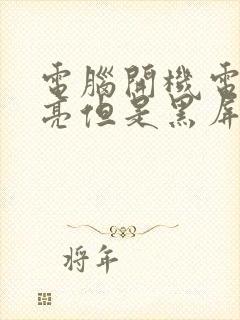 電腦開機電
亮但是黑屏
將年